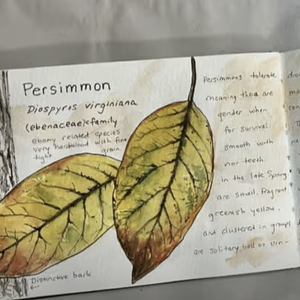 Persimmon
Diospyros virginiana
(ebenaceae) family
ebony related species
very hardwood with fine
tight grain
Distinctive bark
Persimmons tolerate
meaning that are
gender when
for survival.
smooth with
nor teeth
In the late Spring
are small, fragrant
greenish yellow,
and clustered in groups
are solitary, bell or